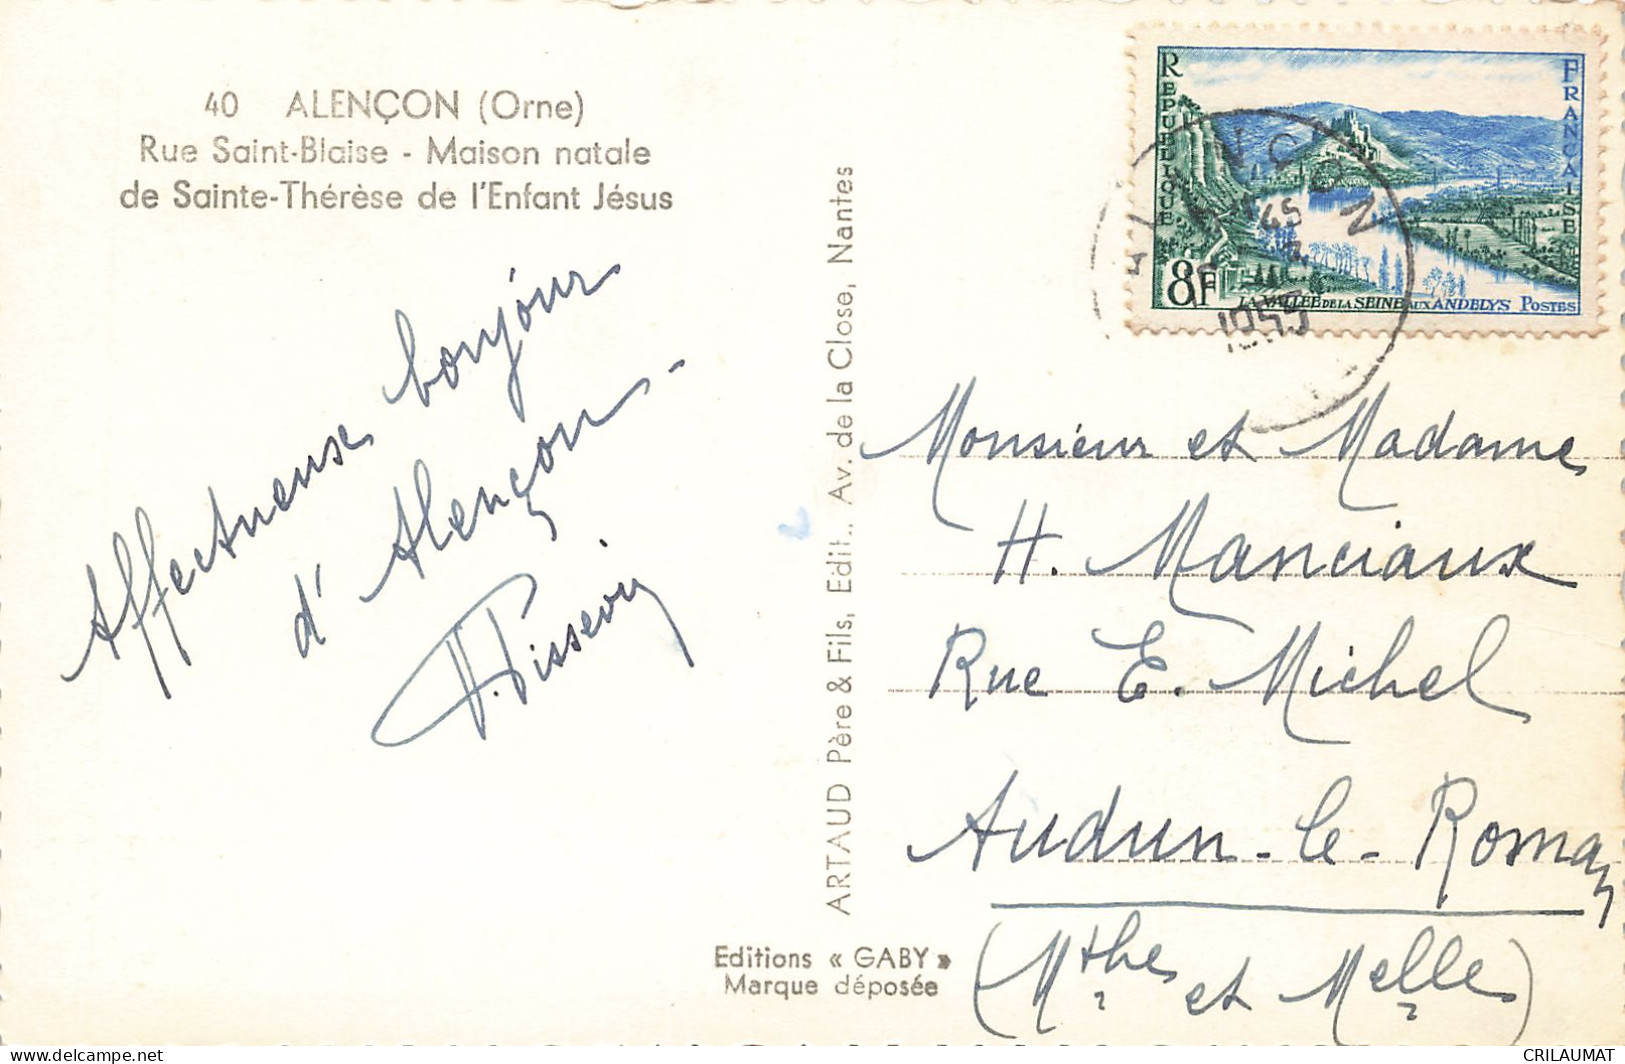 40 ALENÇON (Orne)
Rue Saint-Blaise - Maison natale
de Sainte-Thérèse de l'Enfant Jésus
Affectueux bonjour
d'Alençon -
ARTAUD Père & Fils, Edit., Av. de la Close, Nantes
Editions « GABY »
Marque déposée
REPUBLIQUE
FRANCAISE
8F
LA VALLEE DE LA SEINE AUX ANDELYS POSTES
ALENCON
1955
Monsieur et Madame
H. Manciaux
Rue E. Michel
Audun-le-Roman
(Mthe et Melle)
CRILAUMAT